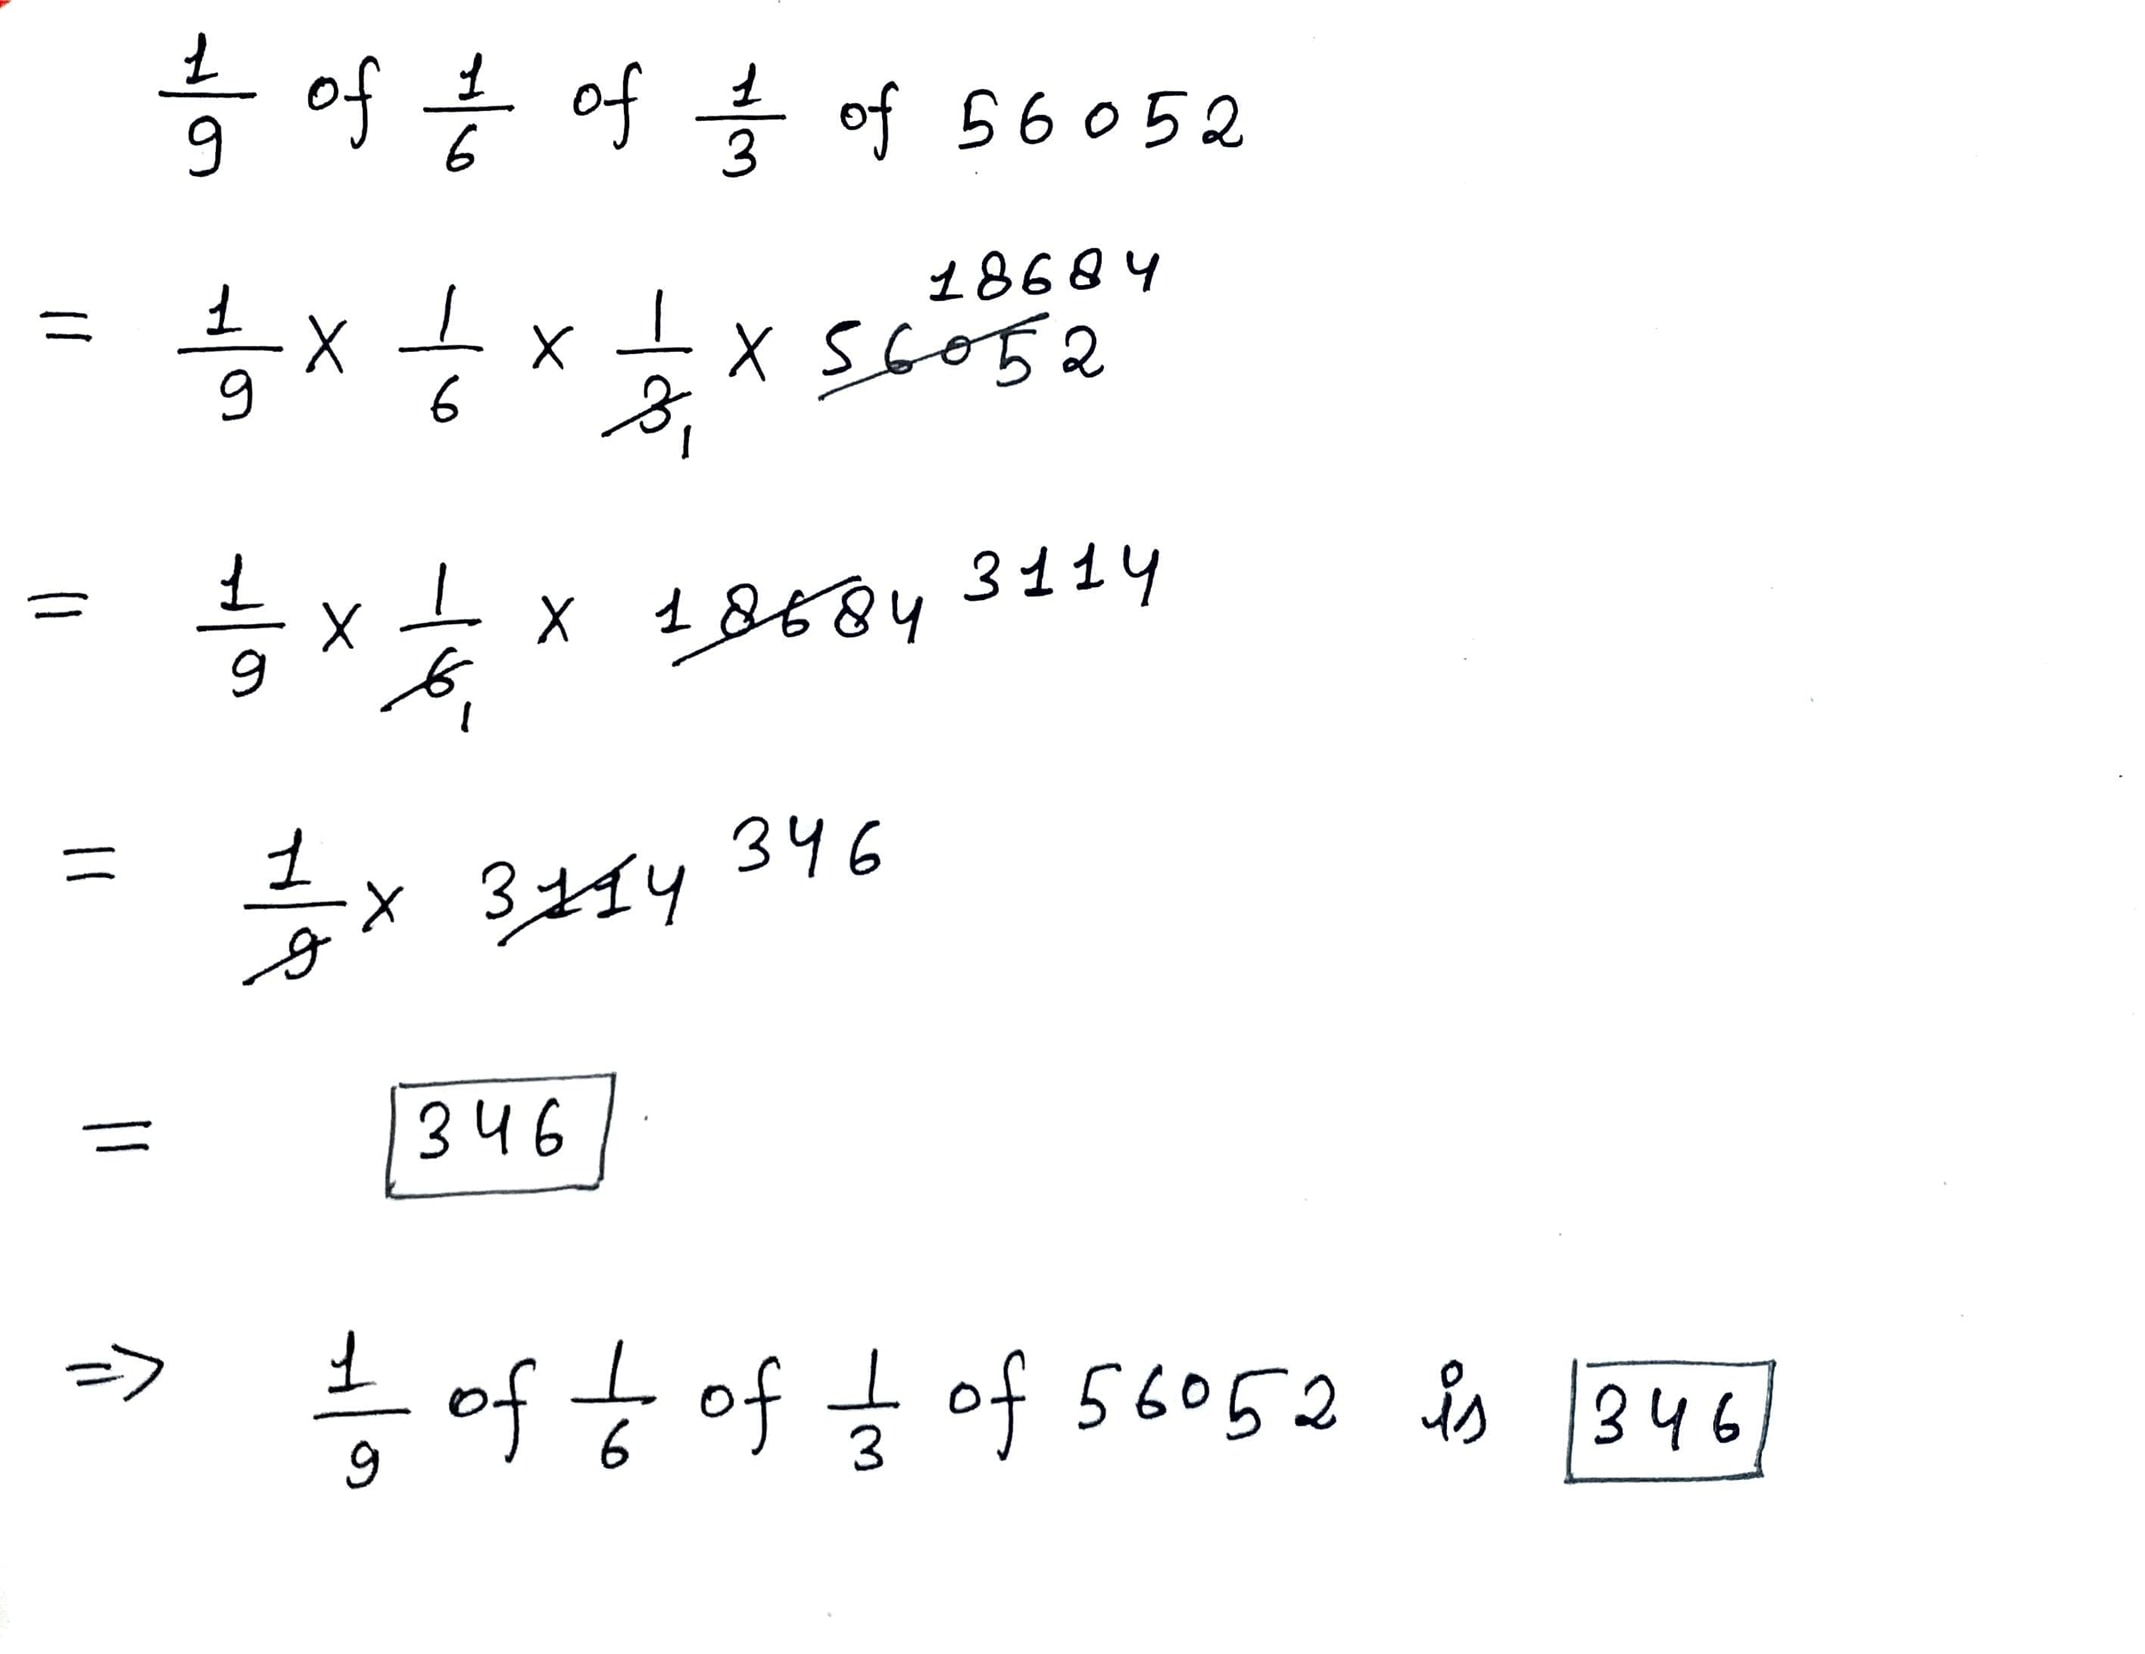 1/9 of 1/6 of 1/3 of 56052
= 1/9 x 1/6 x 1/3 1 x 56052 18684
= 1/9 x 1/6 1 x 18684 3114
= 1/9 x 3114 346
= 346
=> 1/9 of 1/6 of 1/3 of 56052 is 346